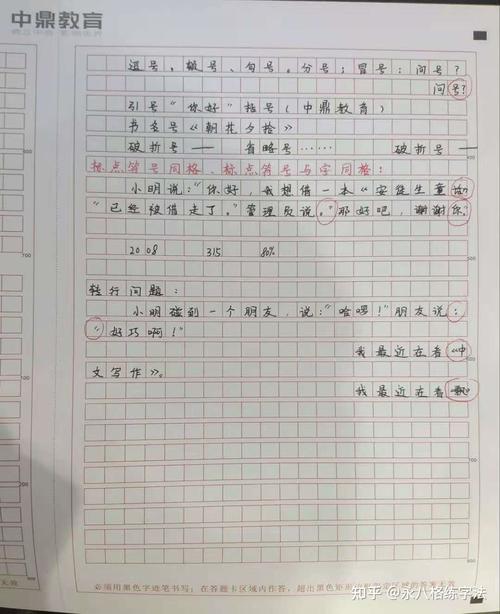 中鼎教育
逗号，顿号、句号。分号；冒号：问号？
问号？
引号“你好”括号（中鼎教育）
书名号《朝花夕拾》
破折号—— 省略号…… 破折号—
标点符号同格、标点符号与字同格：
小明说：“你好，我想借一本《安徒生童话》
“已经被借走了。”管理员说。“那好吧，谢谢你。”
2008 315 80%
转行问题：
小明碰到一个朋友，说：“哈啰！”朋友说：
“好巧啊！”
我最近在看《中
文写作》。
我最近在看
必须用黑色字迹笔书写；在答题卡区域内作答，超出黑色矩形边框限定区域的答案无效
知乎 @永八格练字法